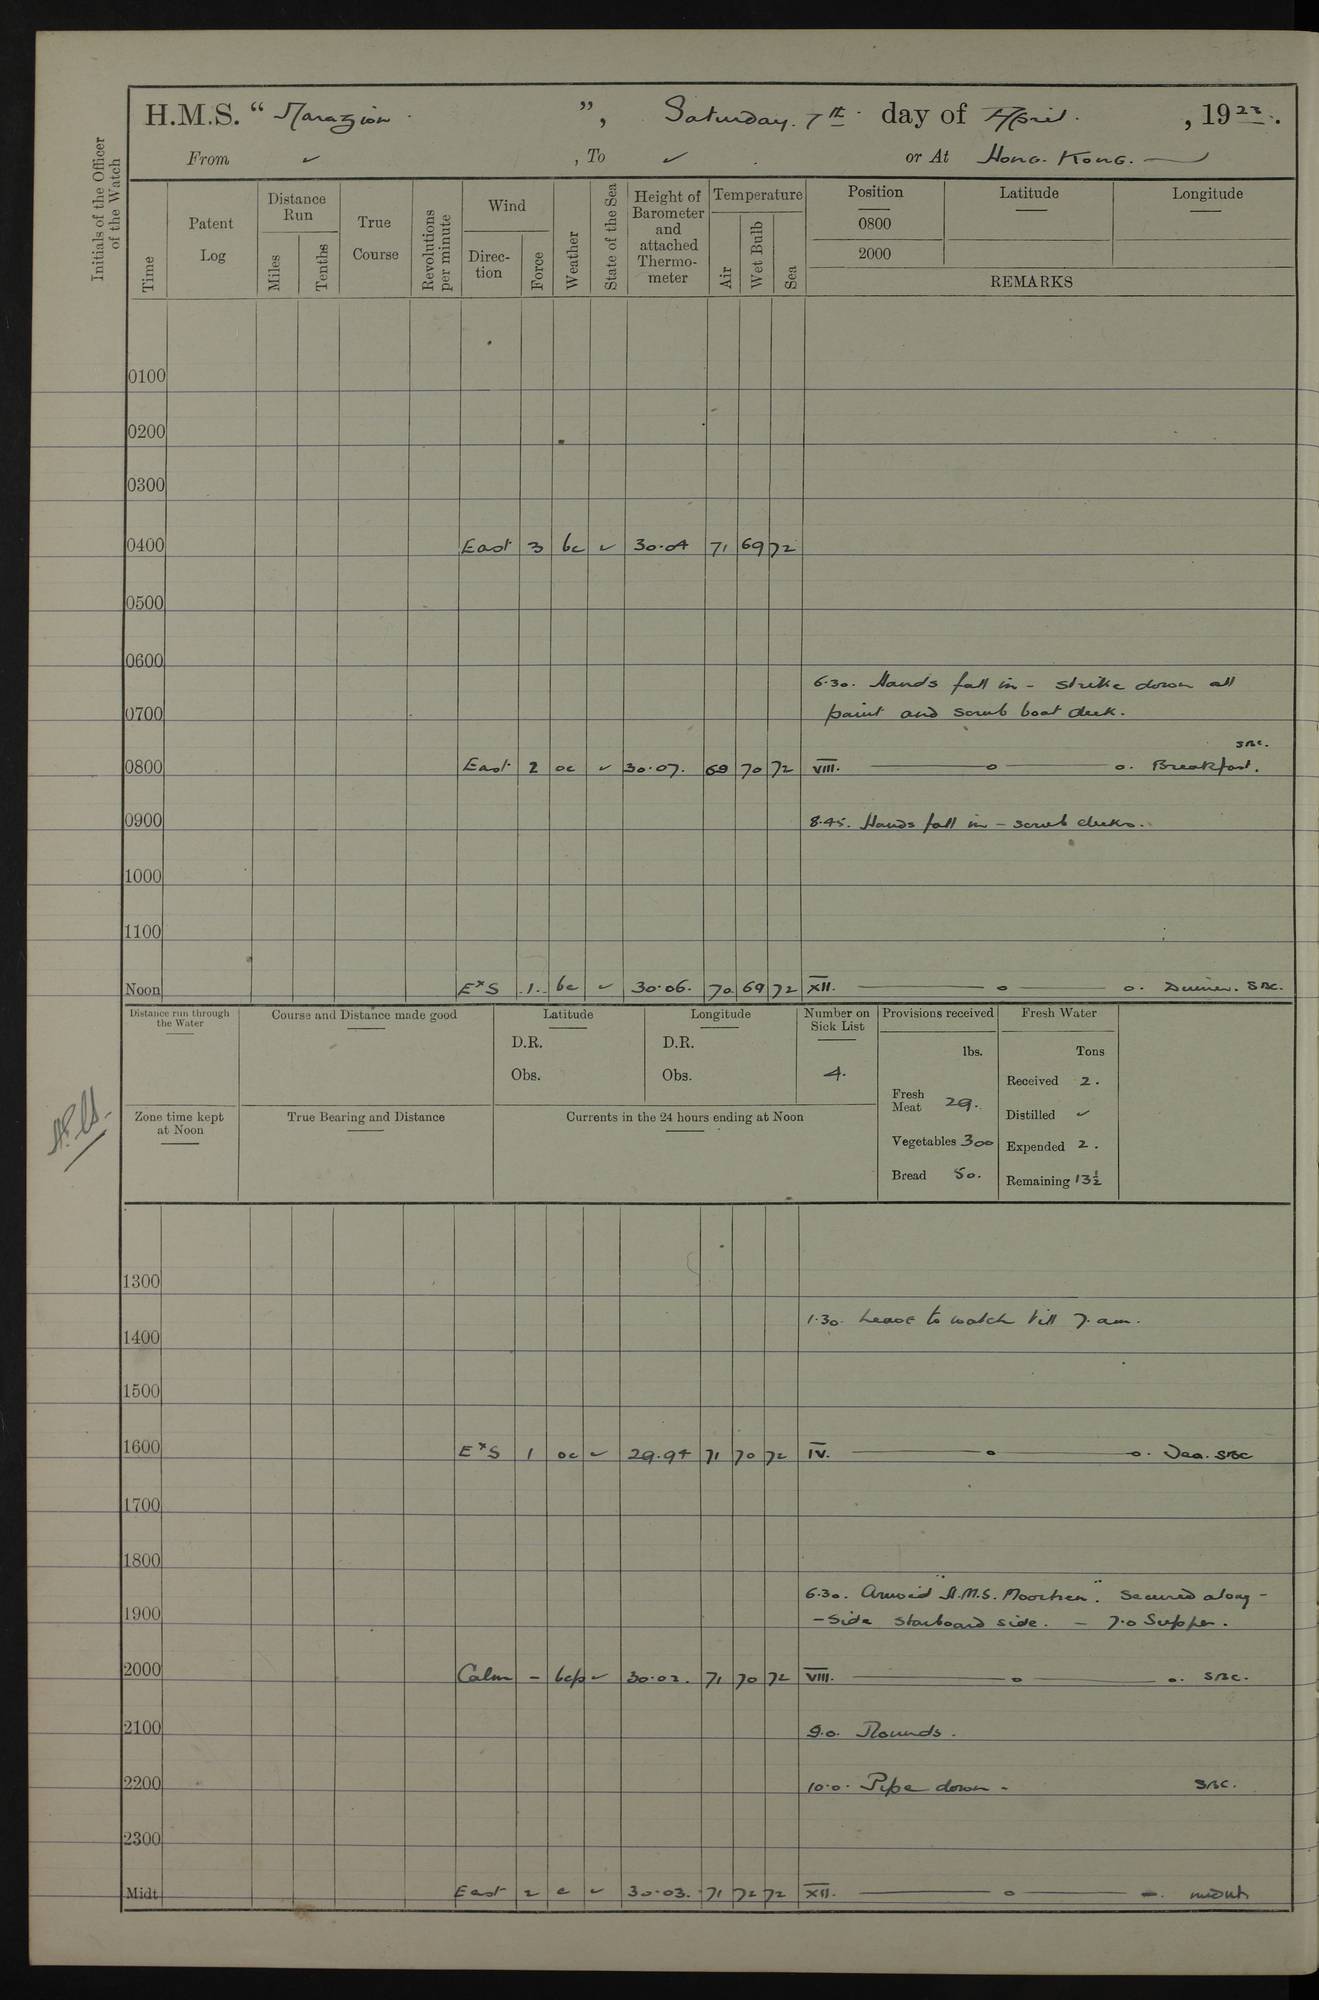 H.M.S. “ Marazion ”, Saturday. 7th day of April. , 1923.
From ✓ , To ✓ or At Hong. Kong.
Initials of the Officer of the Watch
Time
Patent Log
Distance Run
Miles
Tenths
True Course
Revolutions per minute
Wind
Direc-tion
Force
Weather
State of the Sea
Height of Barometer and attached Thermo-meter
Temperature
Air
Wet Bulb
Sea
Position
0800
2000
Latitude
Longitude
REMARKS
0100
0200
0300
0400 East 3 bc ✓ 30.04 71 69 72
0500
0600
6.30. Hands fall in - strike down all
0700 paint and scrub boat deck.
SBC.
0800 East 2 oc ✓ 30.07. 69 70 72 VIII. o o. Breakfast.
0900 8.45. Hands fall in - scrub decks.
1000
1100
Noon ExS .1. bc ✓ 30.06. 70 69 72 XII. o o. Dinner. SBC.
Distance run through the Water
Course and Distance made good
Latitude
D.R.
Obs.
Longitude
D.R.
Obs.
Number on Sick List
4.
Provisions received
lbs.
Fresh Meat 29.
Vegetables 300
Bread 50.
Fresh Water
Tons
Received 2.
Distilled ✓
Expended 2.
Remaining 13½
Zone time kept at Noon
True Bearing and Distance
Currents in the 24 hours ending at Noon
1300
1.30. Leave to watch till 7. am.
1400
1500
1600 ExS 1 oc ✓ 29.94 71 70 72 IV. o o. Tea. SBC
1700
1800
6.30. Arrived "H.M.S. Moorhen". Secured along-
1900 -side starboard side. - 7.0 Supper.
2000 Calm - bcp ✓ 30.02. 71 70 72 VIII. o o. SBC.
2100 9.0. Rounds.
2200 10.0. Pipe down - SBC.
2300
Midt East 2 c ✓ 30.03. 71 72 72 XII. o -.